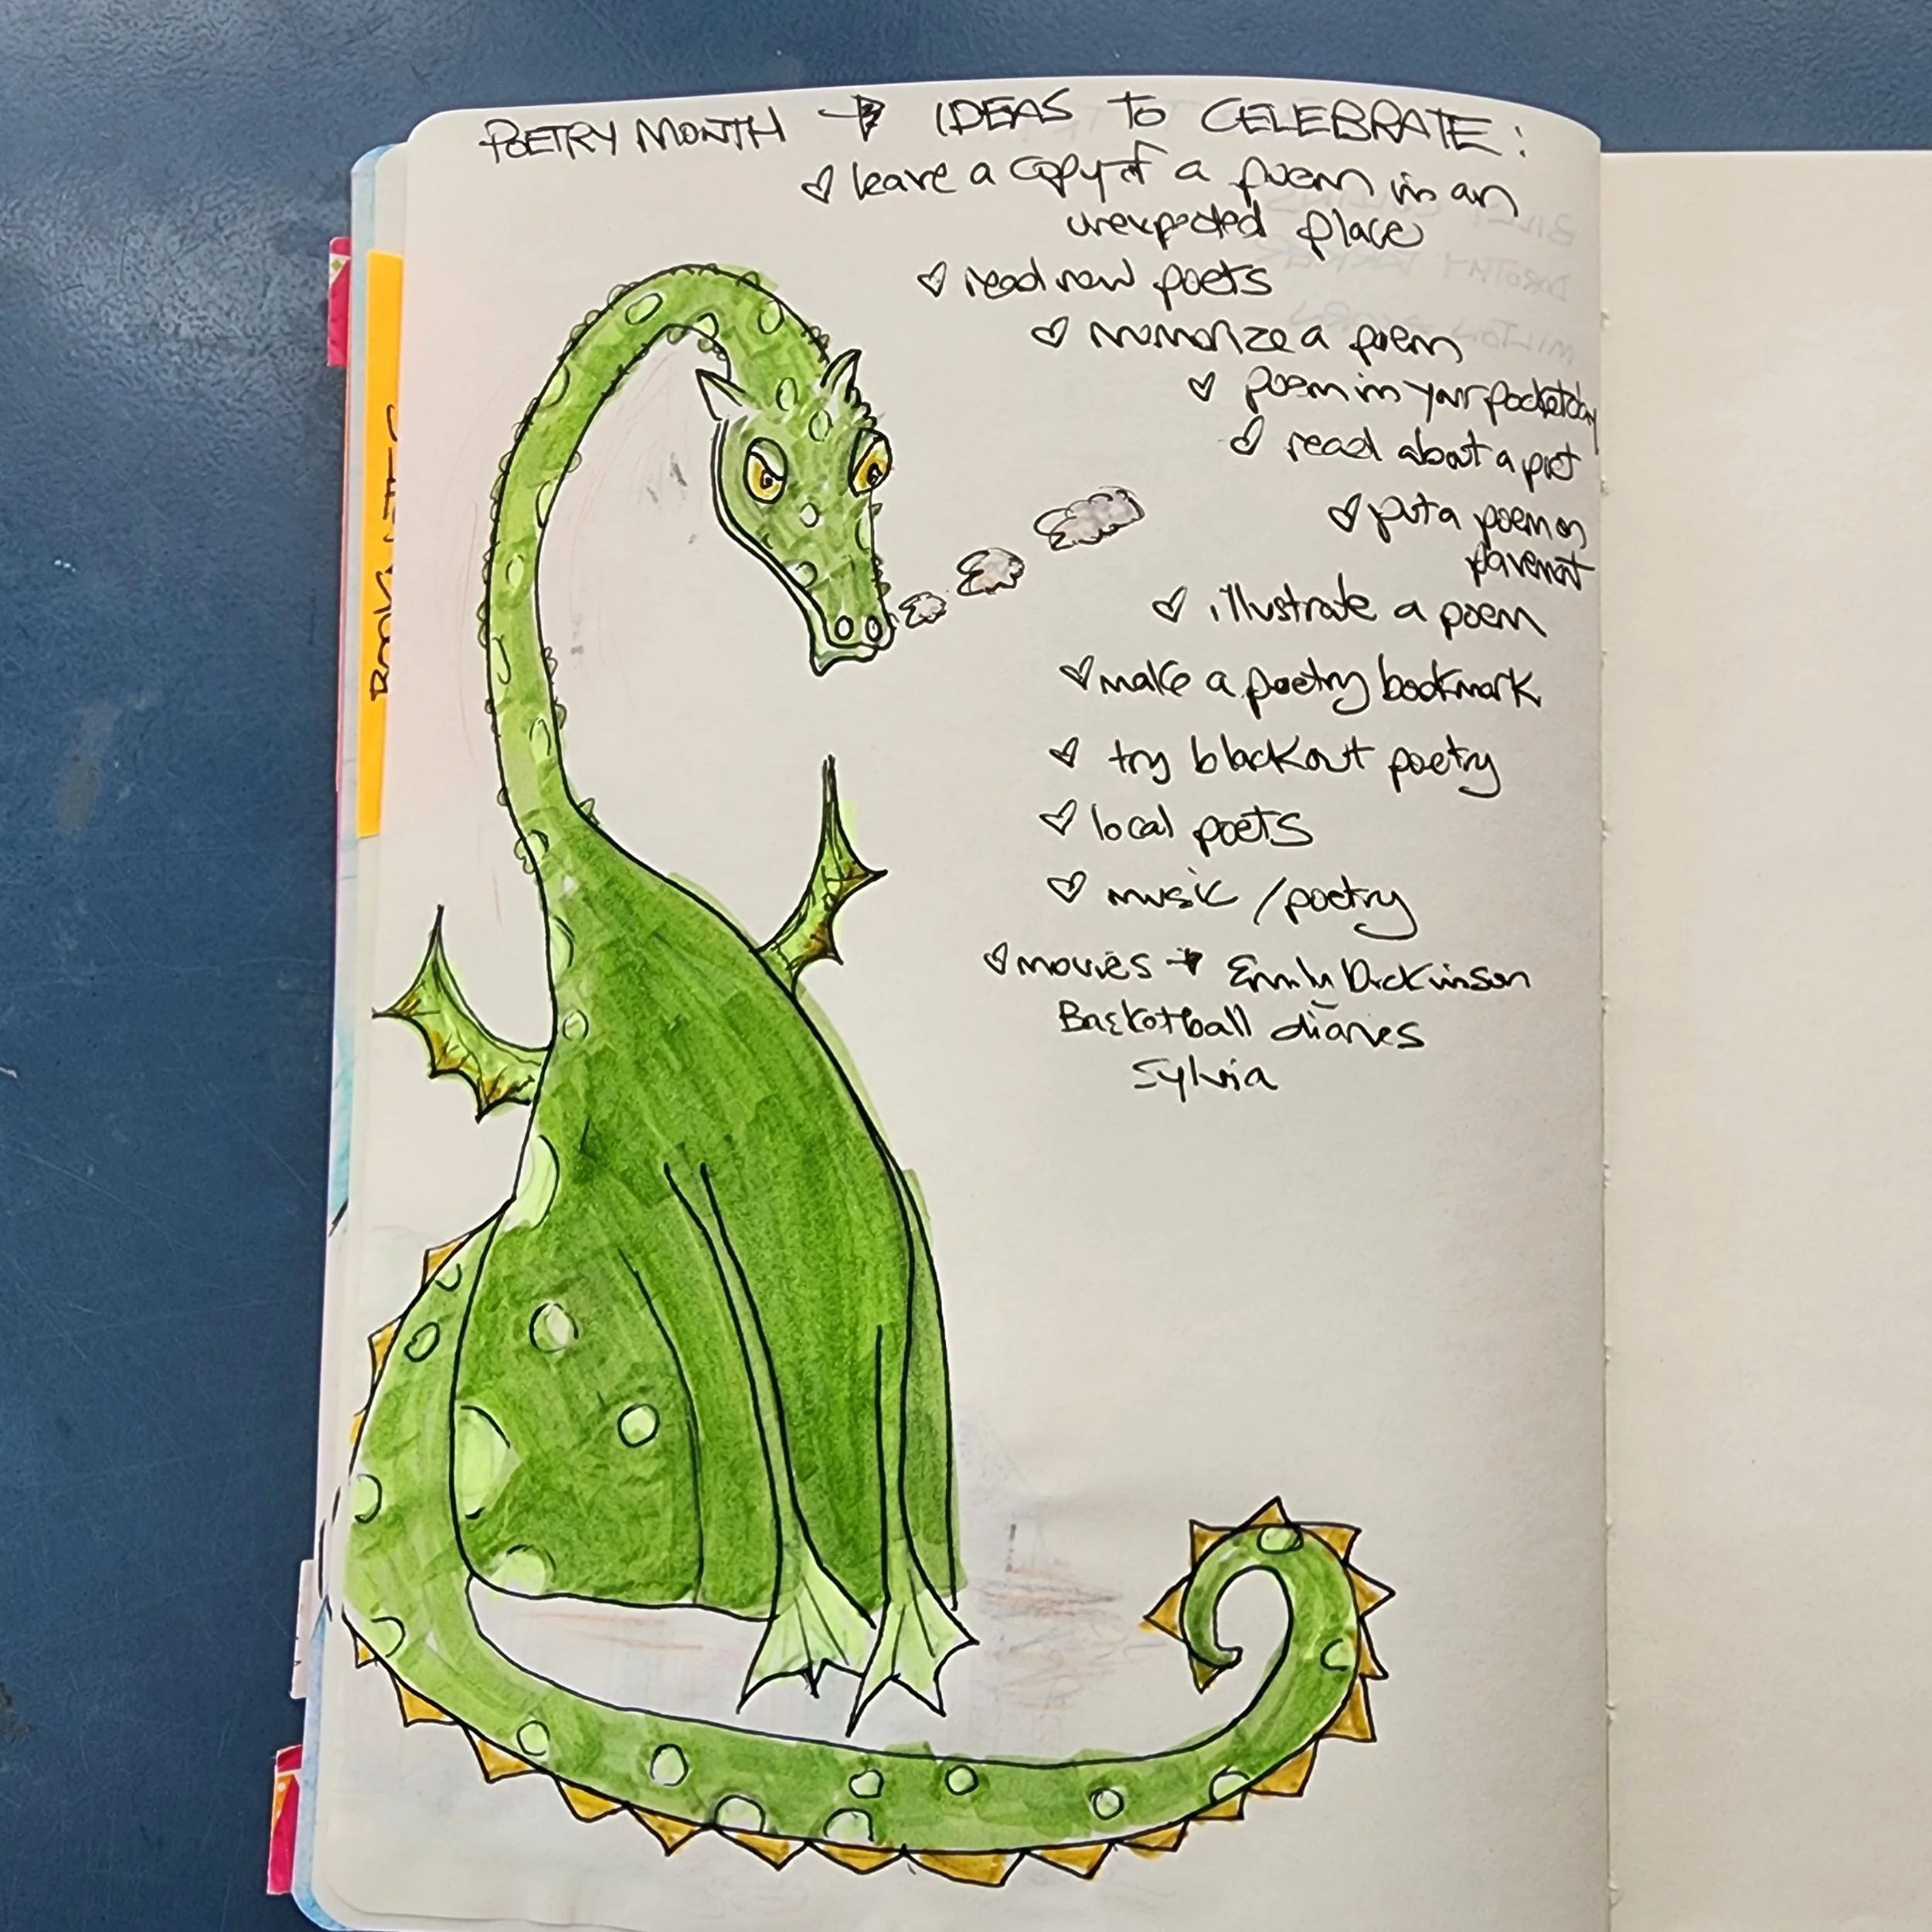 POETRY MONTH → IDEAS TO CELEBRATE:
♡ leave a copy of a poem in an
unexpected place
♡ read new poets
♡ memorize a poem
♡ poem in your pocket day
♡ read about a poet
♡ put a poem on
pavement
♡ illustrate a poem
♡ make a poetry bookmark
♡ try blackout poetry
♡ local poets
♡ music / poetry
♡ movies → Emily Dickinson
Basketball diaries
Sylvia